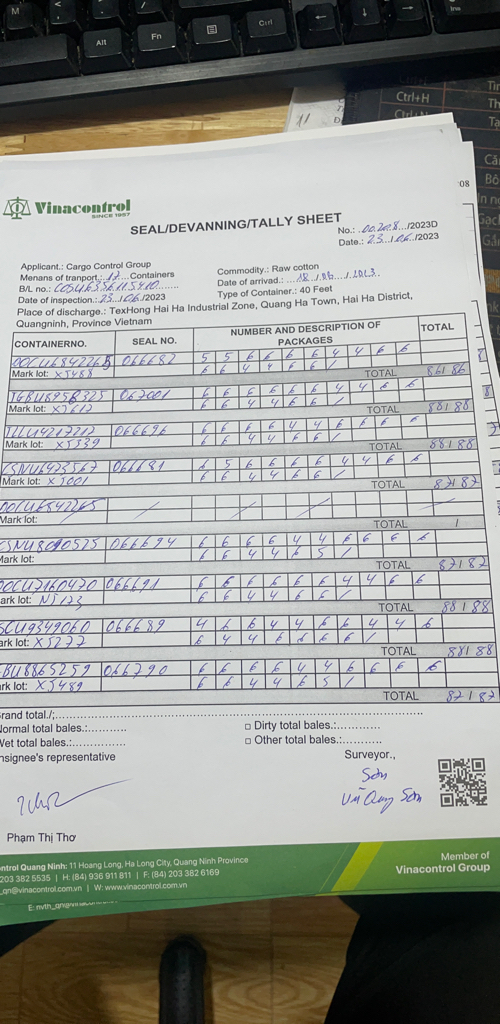 M
Alt
Fn
Ctrl
Ins
Ctrl+H
11
Vinacontrol
SINCE 1957
SEAL/DEVANNING/TALLY SHEET
No.: 00208 /2023D
Date.: 23/06/2023
Applicant.: Cargo Control Group
Menans of tranport.: 17 Containers
Commodity.: Raw cotton
B/L no.: COSU6356115410
Date of arrivad.: 18/06/2023
Date of inspection.: 23/06/2023
Type of Container.: 40 Feet
Place of discharge.: TexHong Hai Ha Industrial Zone, Quang Ha Town, Hai Ha District,
Quangninh, Province Vietnam
CONTAINERNO. SEAL NO. NUMBER AND DESCRIPTION OF PACKAGES TOTAL
OOCU6842265 066682 5 5 6 6 6 6 4 4 6 6
6 6 4 4 6 6 /
Mark lot: XJ488 TOTAL 86/86
067001 6 6 6 6 6 6 4 4 6 6
6 6 4 4 6 6 /
Mark lot: XJ612 TOTAL 88/88
066696 6 6 6 6 4 4 6 6 6 6
6 6 4 4 6 6 /
Mark lot: XJ339 TOTAL 88/88
066681 6 5 6 6 6 6 4 4 6 6
6 6 4 4 6 6 /
Mark lot: XJ001 TOTAL 87/87
OOCU6842265
Mark lot: TOTAL /
CSNU8090525 066694 6 6 6 6 4 4 6 6 6 6
6 6 4 4 6 5 /
Mark lot: TOTAL 87/87
OOCU7160470 066691 6 6 6 6 6 6 4 4 6 6
6 6 4 4 6 6 /
ark lot: NJ123 TOTAL 88/88
066689 4 6 6 4 4 6 6 4 4 6
6 4 4 6 6 6 6 /
ark lot: XJ277 TOTAL 88/88
BU8865259 066790 6 6 6 6 4 4 6 6 6 6
6 6 4 4 6 5 /
rk lot: XJ489 TOTAL 87/87
Grand total./;
Normal total bales.:
□ Dirty total bales.:
Wet total bales.:
□ Other total bales.:
nsignee's representative
Surveyor.,
Sơn
Vũ Quang Sơn
Phạm Thị Thơ
ontrol Quang Ninh: 11 Hoang Long, Ha Long City, Quang Ninh Province
203 382 5535 | H: (84) 936 911 811 | F: (84) 203 382 6169
_qn@vinacontrol.com.vn | W: www.vinacontrol.com.vn
Member of
Vinacontrol Group